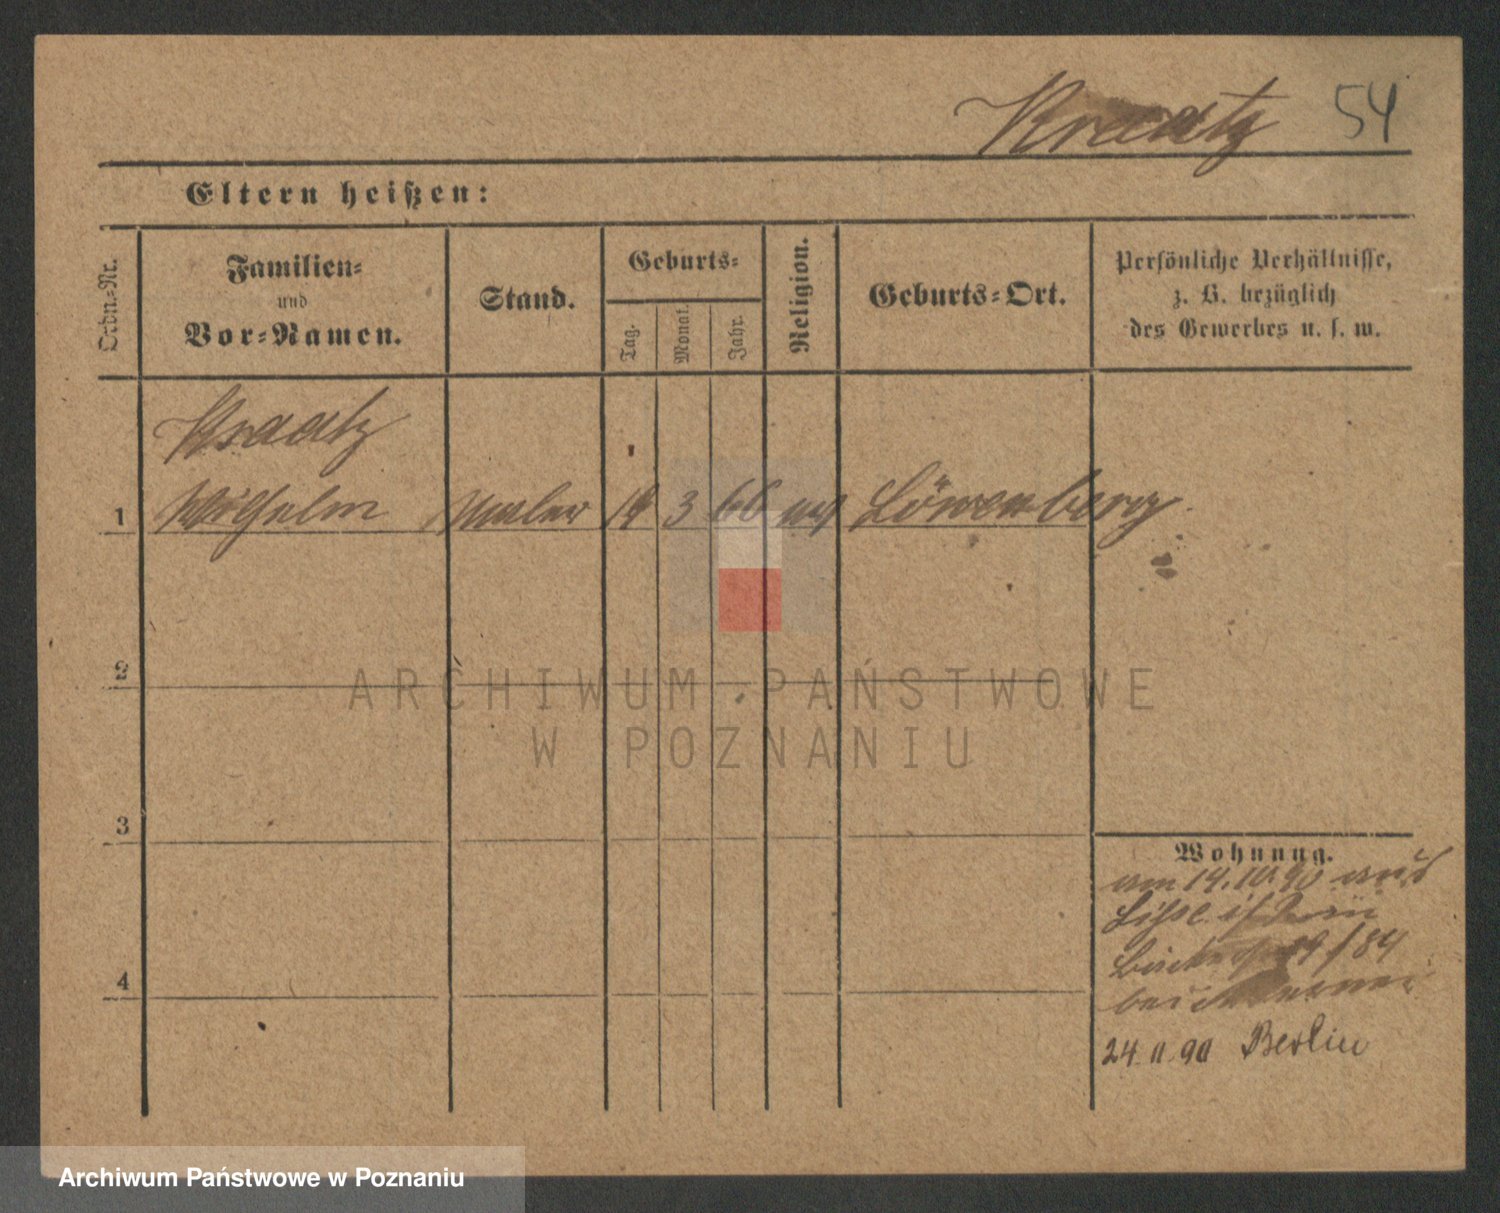 Kraatz 54
Eltern heißen:
Ordn.-Nr.
Familien-
und
Vor-Namen.
Stand.
Geburts-
Tag.
Monat.
Jahr.
Religion.
Geburts-Ort.
Persönliche Verhältnisse,
z. B. bezüglich
des Gewerbes u. s. w.
Kraatz
1 Wilhelm Maler 19 3 66 ev Löwenberg
2
3
4
Wohnung.
am 14. 10. 90 aus
19/84
bei
24. 11. 90 Berlin
ARCHIWUM PAŃSTWOWE
W POZNANIU
Archiwum Państwowe w Poznaniu